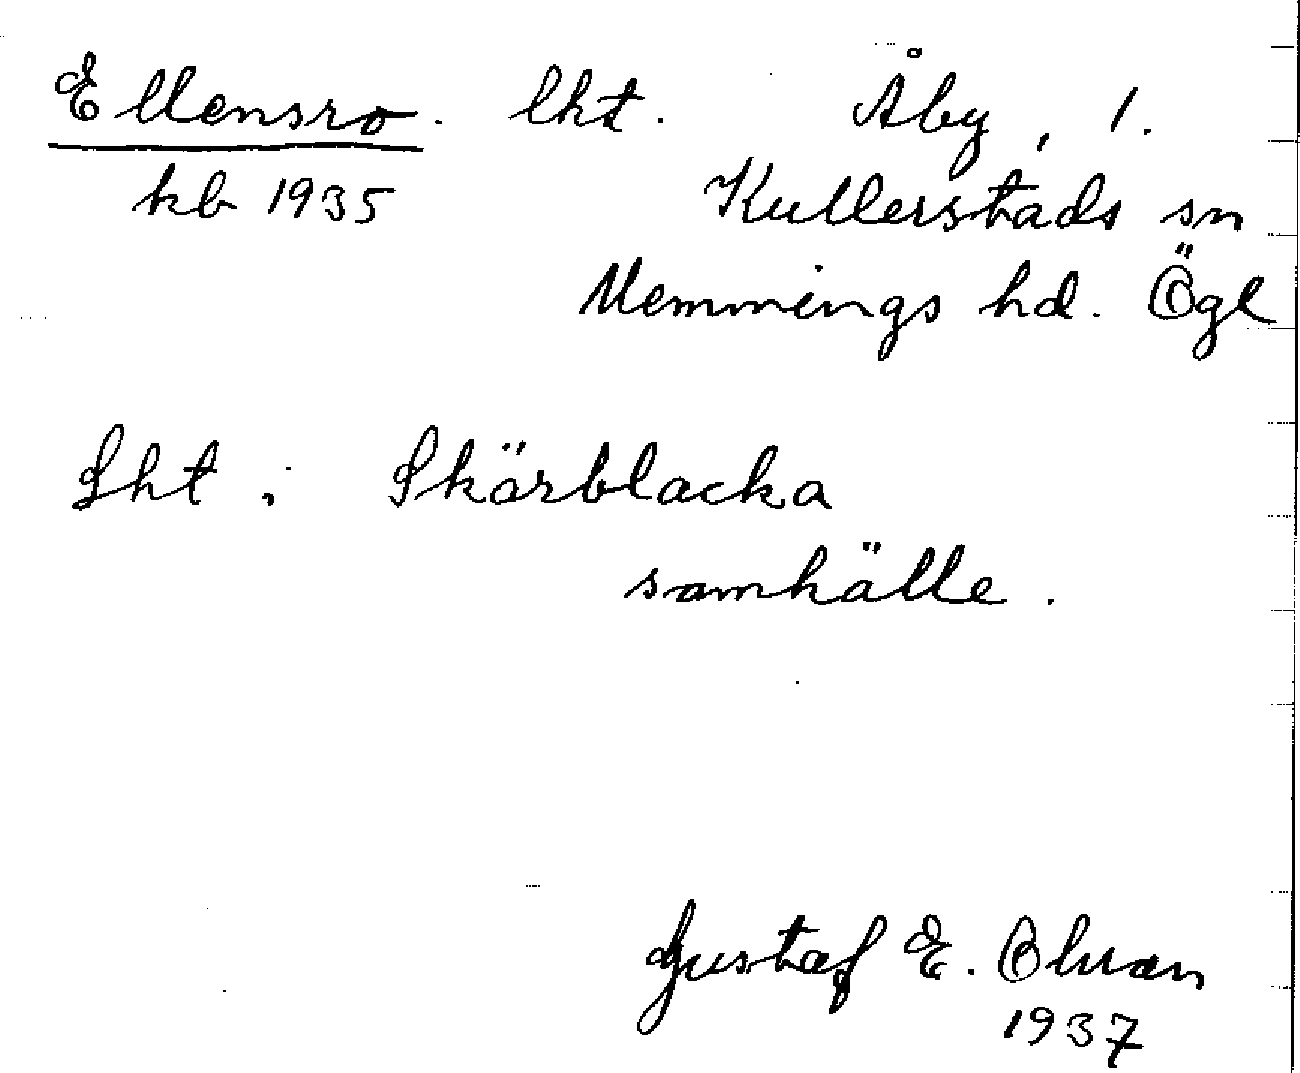 Ellensro. lht. Åby, 1.
kb 1935 Kullerstads sn
Memmings hd. Ögl
Lht i Skärblacka
samhälle.
Gustaf E. Olson
1937